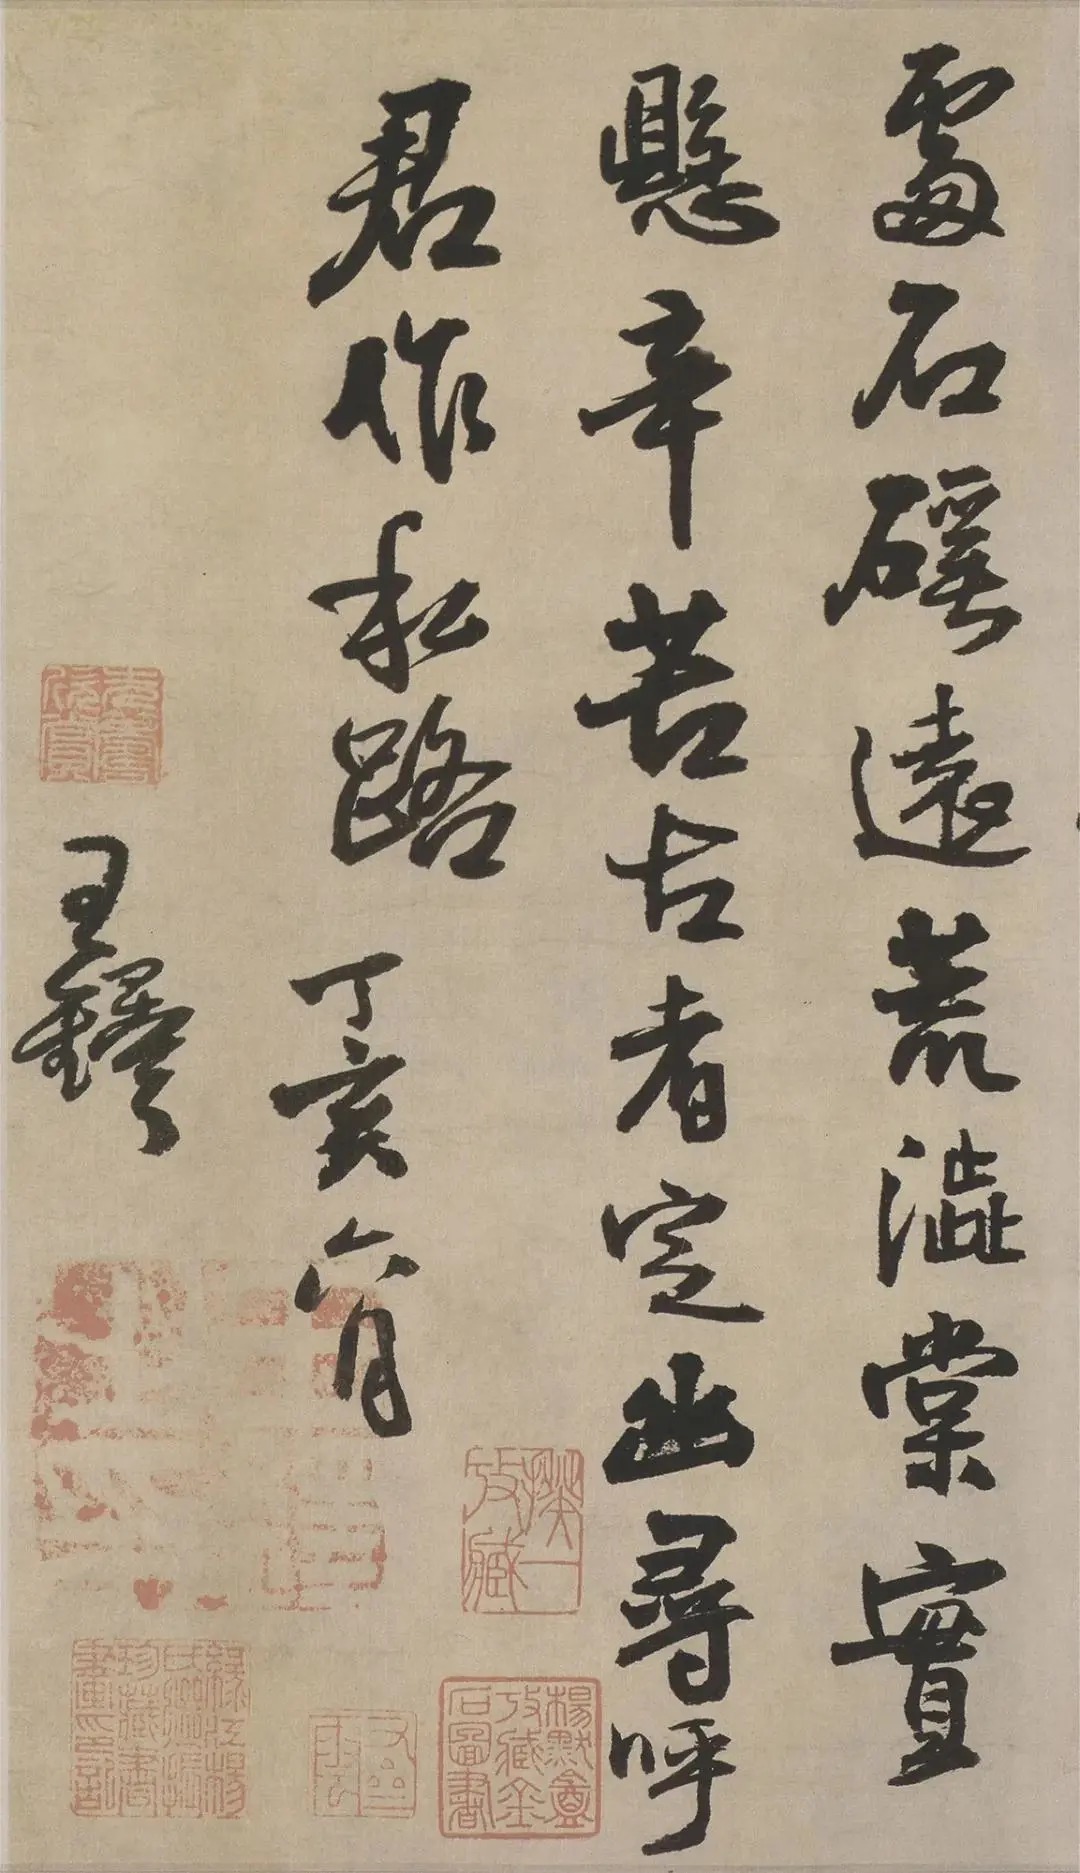 石磘遠荒澁棠實
懸辛苦古者定幽尋呼
君作私路 丁亥六月
王鐸